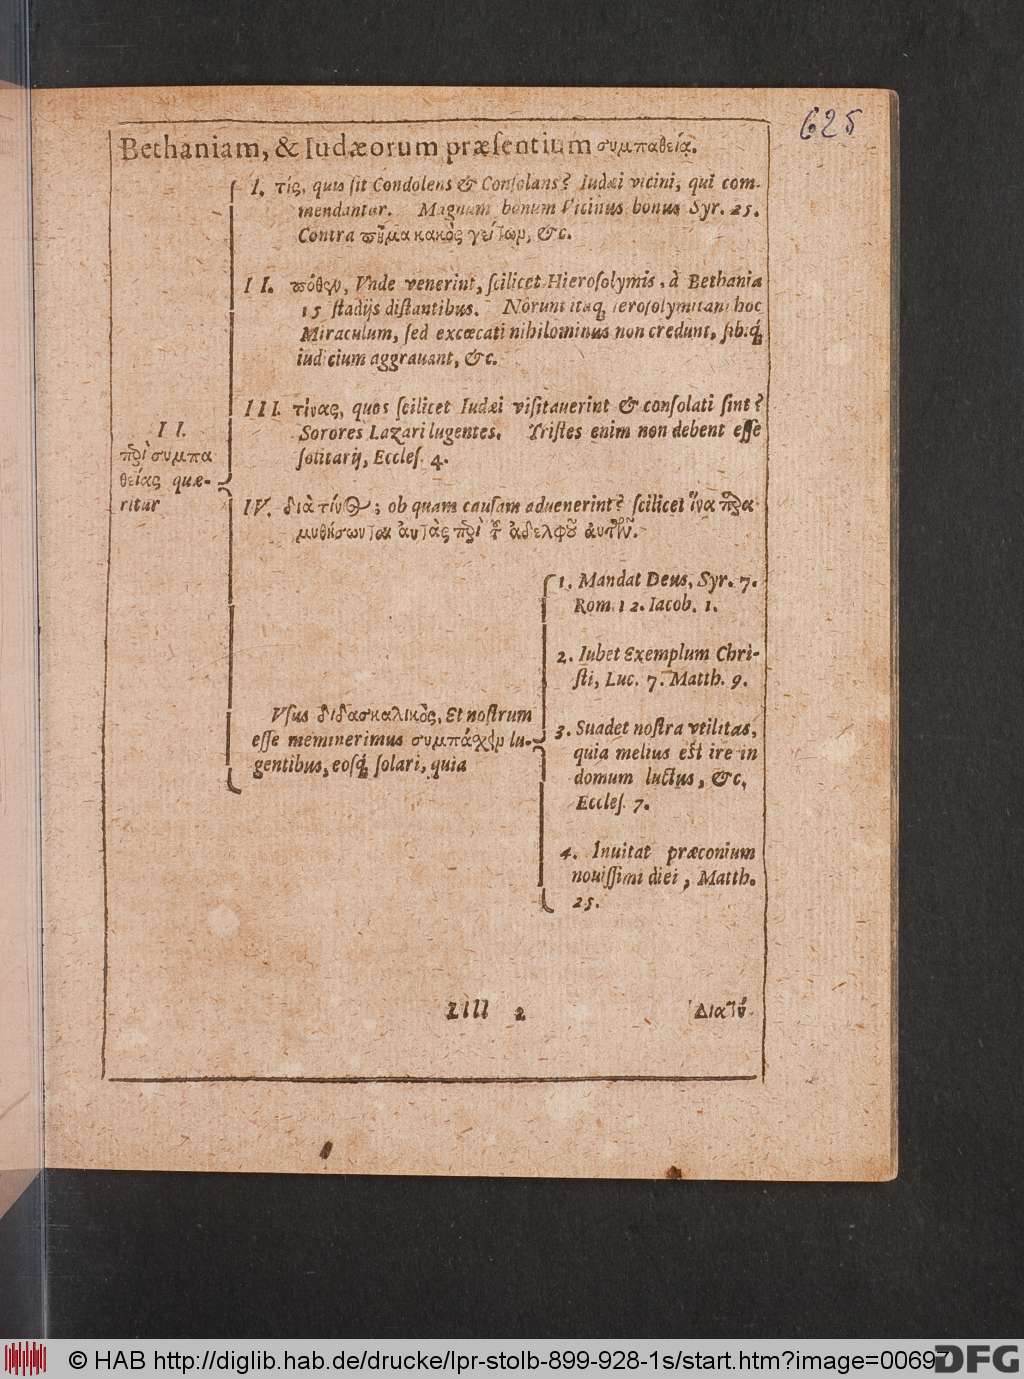 625
Bethaniam, & Iudæorum præſentium συμπαθείᾳ.
I. τίς, quis ſit Condolens & Conſolans? Iudæi vicini, qui com-
mendantur. Magnum bonum Vicinus bonus Syr. 25.
Contra πῆμα κακὸς γείτων, &c.
II. πόθεν, Vnde venerint, ſcilicet Hieroſolymis, à Bethania
15 ſtadijs diſtantibus. Norunt itaq́; Ieroſolymitani hoc
Miraculum, ſed excæcati nihilominus non credunt, ſibiq́;
iudicium aggrauant, &c.
III. τίνας, quos ſcilicet Iudæi viſitauerint & conſolati ſint?
Sorores Lazari lugentes. Triſtes enim non debent eſſe
ſolitarij, Eccleſ. 4.
II.
περὶ συμπα
θείας quæ-
ritur
IV. διὰ τίνος; ob quam cauſam aduenerint? ſcilicet ἵνα παρα
μυθήσωνται αὐτὰς περὶ τοῦ ἀδελφοῦ αὐτῶν.
1. Mandat Deus, Syr. 7.
Rom. 12. Iacob. 1.
2. Iubet Exemplum Chri-
ſti, Luc. 7. Matth. 9.
Vſus διδασκαλικὸς, Et noſtrum
eſſe meminerimus συμπάσχειν lu-
gentibus, eosq́; ſolari, quia
3. Suadet noſtra vtilitas,
quia melius eſt ire in
domum luctus, &c,
Eccleſ. 7.
4. Inuitat præconium
nouiſſimi diei, Matth.
25.
Llll 2
Διατύ-
© HAB http://diglib.hab.de/drucke/lpr-stolb-899-928-1s/start.htm?image=00697
DFG